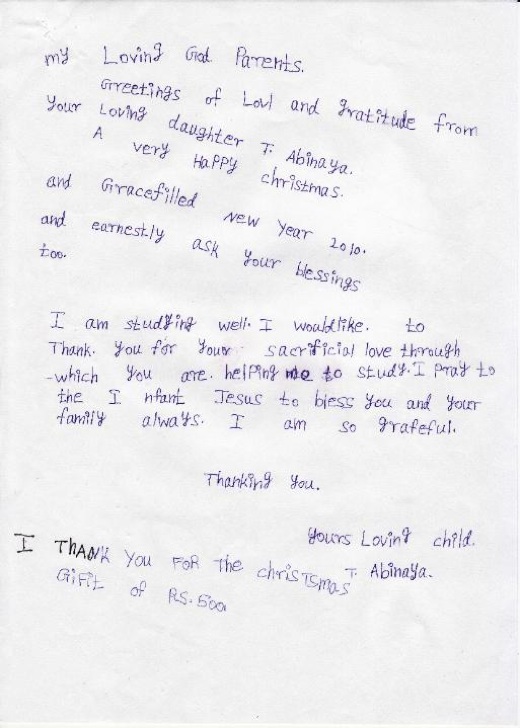 my Loving God Parents.
Greetings of Lovl and gratitude from
Your Loving daughter T. Abinaya.
A very Happy christmas.
and Gracefilled New Year 2010.
and earnestly ask your blessings
too.
I am studying well. I wouldlike. to
Thank. you for your sacrificial love through
-which you are. helping me to study. I pray to
the I nfant Jesus to bless you and your
family always. I am so grateful.
Thanking you.
yours Loving child.
T. Abinaya.
I THANK you FOR The chrisTsmas
GiFit of RS. 500